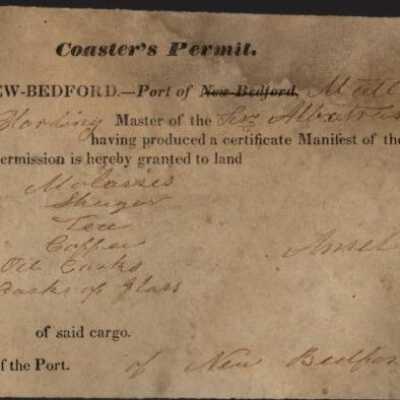 Coaster's Permit.
EW-BEDFORD.—Port of New-Bedford, Matt
Harding Master of the Albatross
having produced a certificate Manifest of the
ermission is hereby granted to land
Molasses
Shugar
Tea
Coffee
Oil Casks
Casks of Glass
of said cargo.
of the Port. of New Bedfor